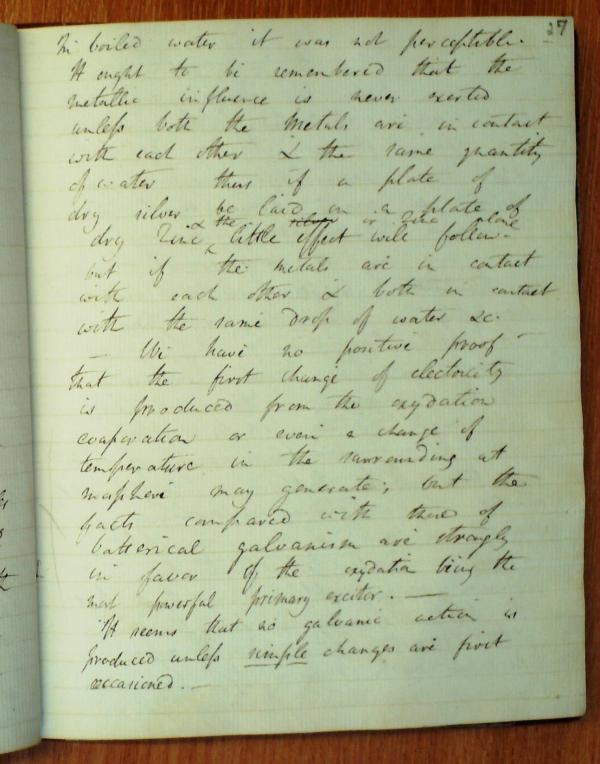 27
In boiled water it was not perceptible.
It ought to be remembered that the
metallic influence is never exerted
unless both the metals are in contact
with each other & the same quantity
of water thus if a plate of
dry silver be laid on a plate of
& the silver or zinc alone
dry Zinc little effect will follow
but if the metals are in contact
with each other & both in contact
with the same drop of water &c.
— We have no positive proof
that the first change of electricity
is produced from the oxydation
evaporation or even a change of
temperature in the surrounding at
mosphere may generate; but the
facts compared with those of
batterical galvanism are strongly
in favor of the oxydation being the
most powerful primary exciter. —
It seems that no galvanic action is
produced unless simple changes are first
occasioned. —